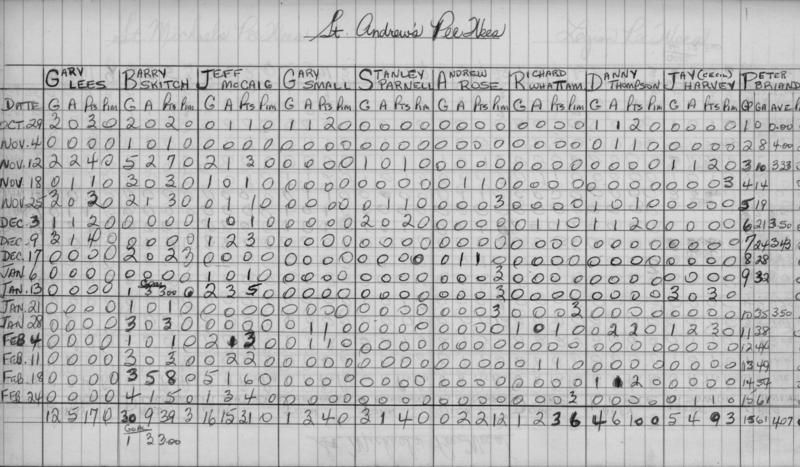 St. Andrew's Pee Wees
GARY LEES BARRY SKITCH JEFF McCAIG GARY SMALL STANLEY PARNELL ANDREW ROSE RICHARD WHATTAM DANNY THOMPSON JAY (CECIL) HARVEY PETER BRIAND
DATE G A Pts Pim G A Pts Pim G A Pts Pim G A Pts Pim G A Pts Pim G A Pts Pim G A Pts Pim G A Pts Pim G A Pts Pim GP GA AVE
OCT. 29 3 0 3 0 2 0 2 0 0 1 1 0 1 1 2 0 0 0 0 0 0 0 0 0 0 0 0 0 1 1 2 0 0 0 0 0 1 0 0.00
NOV. 4 0 0 0 0 1 0 1 0 0 0 0 0 0 0 0 0 0 0 0 0 0 0 0 0 0 0 0 0 0 1 1 0 0 0 0 0 2 8 4.00
NOV. 12 2 2 4 0 5 2 7 0 2 1 3 0 0 0 0 0 1 0 1 0 0 0 0 0 0 0 0 0 0 0 0 0 1 1 2 0 3 10 3.33
NOV. 18 0 1 1 0 3 0 3 0 1 0 1 0 0 0 0 0 0 0 0 0 0 1 1 0 0 0 0 0 0 0 0 0 0 0 0 3 4 14
NOV. 25 2 0 2 0 2 1 3 0 0 1 1 0 0 0 0 0 0 1 1 0 0 0 0 3 0 0 0 0 1 0 1 0 0 0 0 0 5 19
DEC. 3 1 1 2 0 0 0 0 0 1 0 1 0 0 0 0 0 2 0 2 0 0 0 0 0 0 1 1 0 1 1 2 0 0 0 0 0 6 21 3.50
DEC. 9 3 1 4 0 0 0 0 0 1 2 3 0 0 0 0 0 0 0 0 0 0 0 0 0 0 0 0 0 0 0 0 0 0 0 0 0 7 24 3.43
DEC. 17 0 0 0 0 2 0 2 3 0 0 0 0 0 0 0 0 0 0 0 0 0 1 1 0 0 0 0 0 0 0 0 0 0 0 0 0 8 28
JAN 6 0 0 0 0 0 0 0 0 1 0 1 0 0 0 0 0 0 0 0 0 0 0 0 3 0 0 0 0 0 0 0 0 0 0 0 0 9 32
JAN. 13 0 0 0 0 Goal 1 3 3.00 0 2 3 5 0 0 0 0 0 0 0 0 0 0 0 0 3 0 0 0 0 0 0 0 0 3 0 3 0
JAN. 21 0 0 0 0 1 0 1 0 0 0 0 0 0 0 0 0 0 0 0 0 0 0 0 3 0 0 0 3 0 0 0 0 0 0 0 0 10 35 3.50
JAN 28 0 0 0 0 3 0 3 0 0 0 0 0 0 1 1 0 0 0 0 0 0 0 0 0 1 0 1 0 0 2 2 0 1 2 3 0 11 38
FEB 4 0 0 0 0 1 0 1 0 2 1 3 0 0 1 1 0 0 0 0 0 0 0 0 0 0 0 0 0 0 0 0 0 0 0 0 0 12 46
FEB. 11 0 0 0 0 3 0 3 0 0 2 2 0 0 0 0 0 0 0 0 0 0 0 0 0 0 1 1 0 0 0 0 0 0 0 0 0 13 49
FEB. 18 0 0 0 0 3 5 8 0 5 1 6 0 0 0 0 0 0 0 0 0 0 0 0 0 0 0 0 0 1 1 2 0 0 0 0 0 14 54
FEB. 24 0 0 0 0 4 1 5 0 1 3 4 0 0 0 0 0 0 0 0 0 0 0 0 0 0 0 0 3 0 0 0 0 0 1 1 0 15 61
12 5 17 0 30 9 39 3 16 15 31 0 1 3 4 0 3 1 4 0 0 2 2 12 1 2 3 6 4 6 10 0 5 4 9 3 15 61 4.07
Goal
1 3 3.00